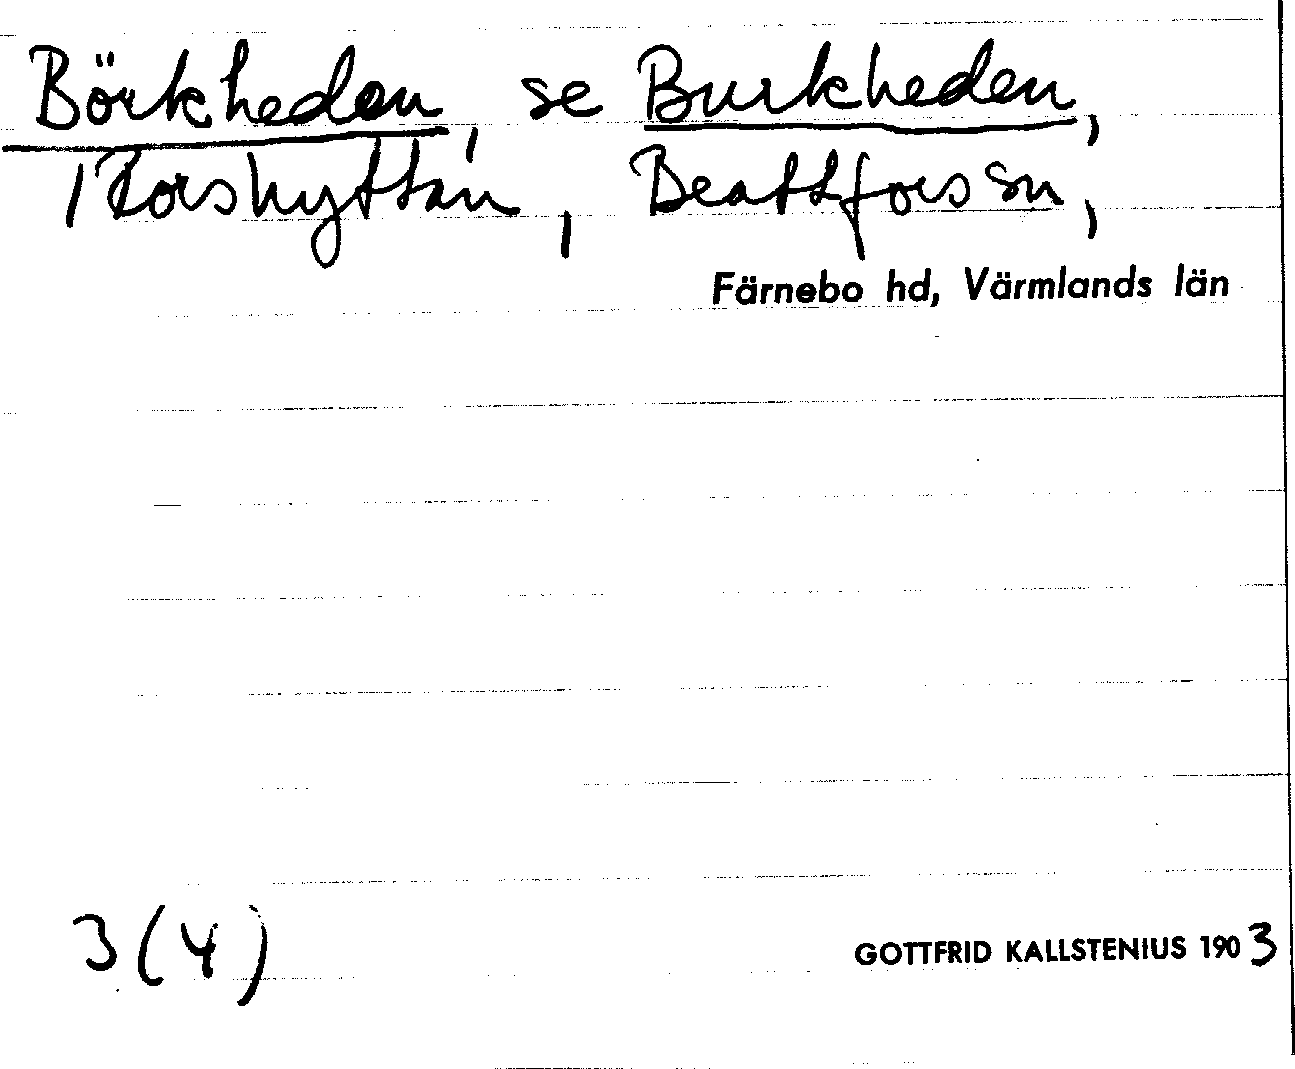 Börkheden, se Burkheden,
Brattfors sn,
Färnebo hd, Värmlands län
3 (4)
GOTTFRID KALLSTENIUS 1903